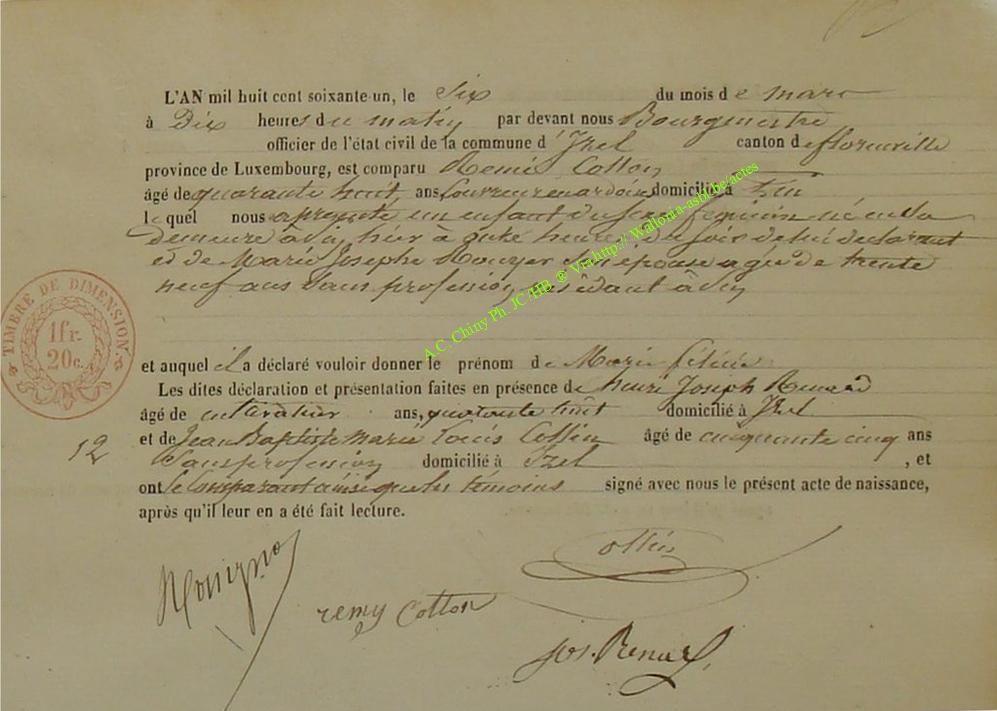 L'AN mil huit cent soixante-un, le Six du mois de mars
à Dix heures du matin par devant nous Bourgmestre
officier de l'état civil de la commune d'Izel canton de florenville
province de Luxembourg, est comparu Remi Cotton
âgé de quarante huit, ans, domicilié à
lequel nous a présenté un enfant du sexe féminin né en sa
demeure à hier à onze heures du soir de lui déclarant
et de Marie Josephe Rouyer son épouse agée de trente
neuf ans Sans profession, résidant à
et auquel il a déclaré vouloir donner le prénom de Marie félicie
Les dites déclaration et présentation faites en présence de henri Joseph Renard
âgé de ans, quarante huit domicilié à Izel
12
et de Jean Baptiste Marie Louis Collin âgé de cinquante cinq ans
Sans profession domicilié à Izel , et
ont le Comparant ainsi que les témoins signé avec nous le présent acte de naissance,
après qu'il leur en a été fait lecture.
remy Cotton
Jos. Renard
TIMBRE DE DIMENSION.
1fr.
20c.
A.C. Chiny Ph. JC /HB ® Via http:// Wallonia-asbl.be/actes